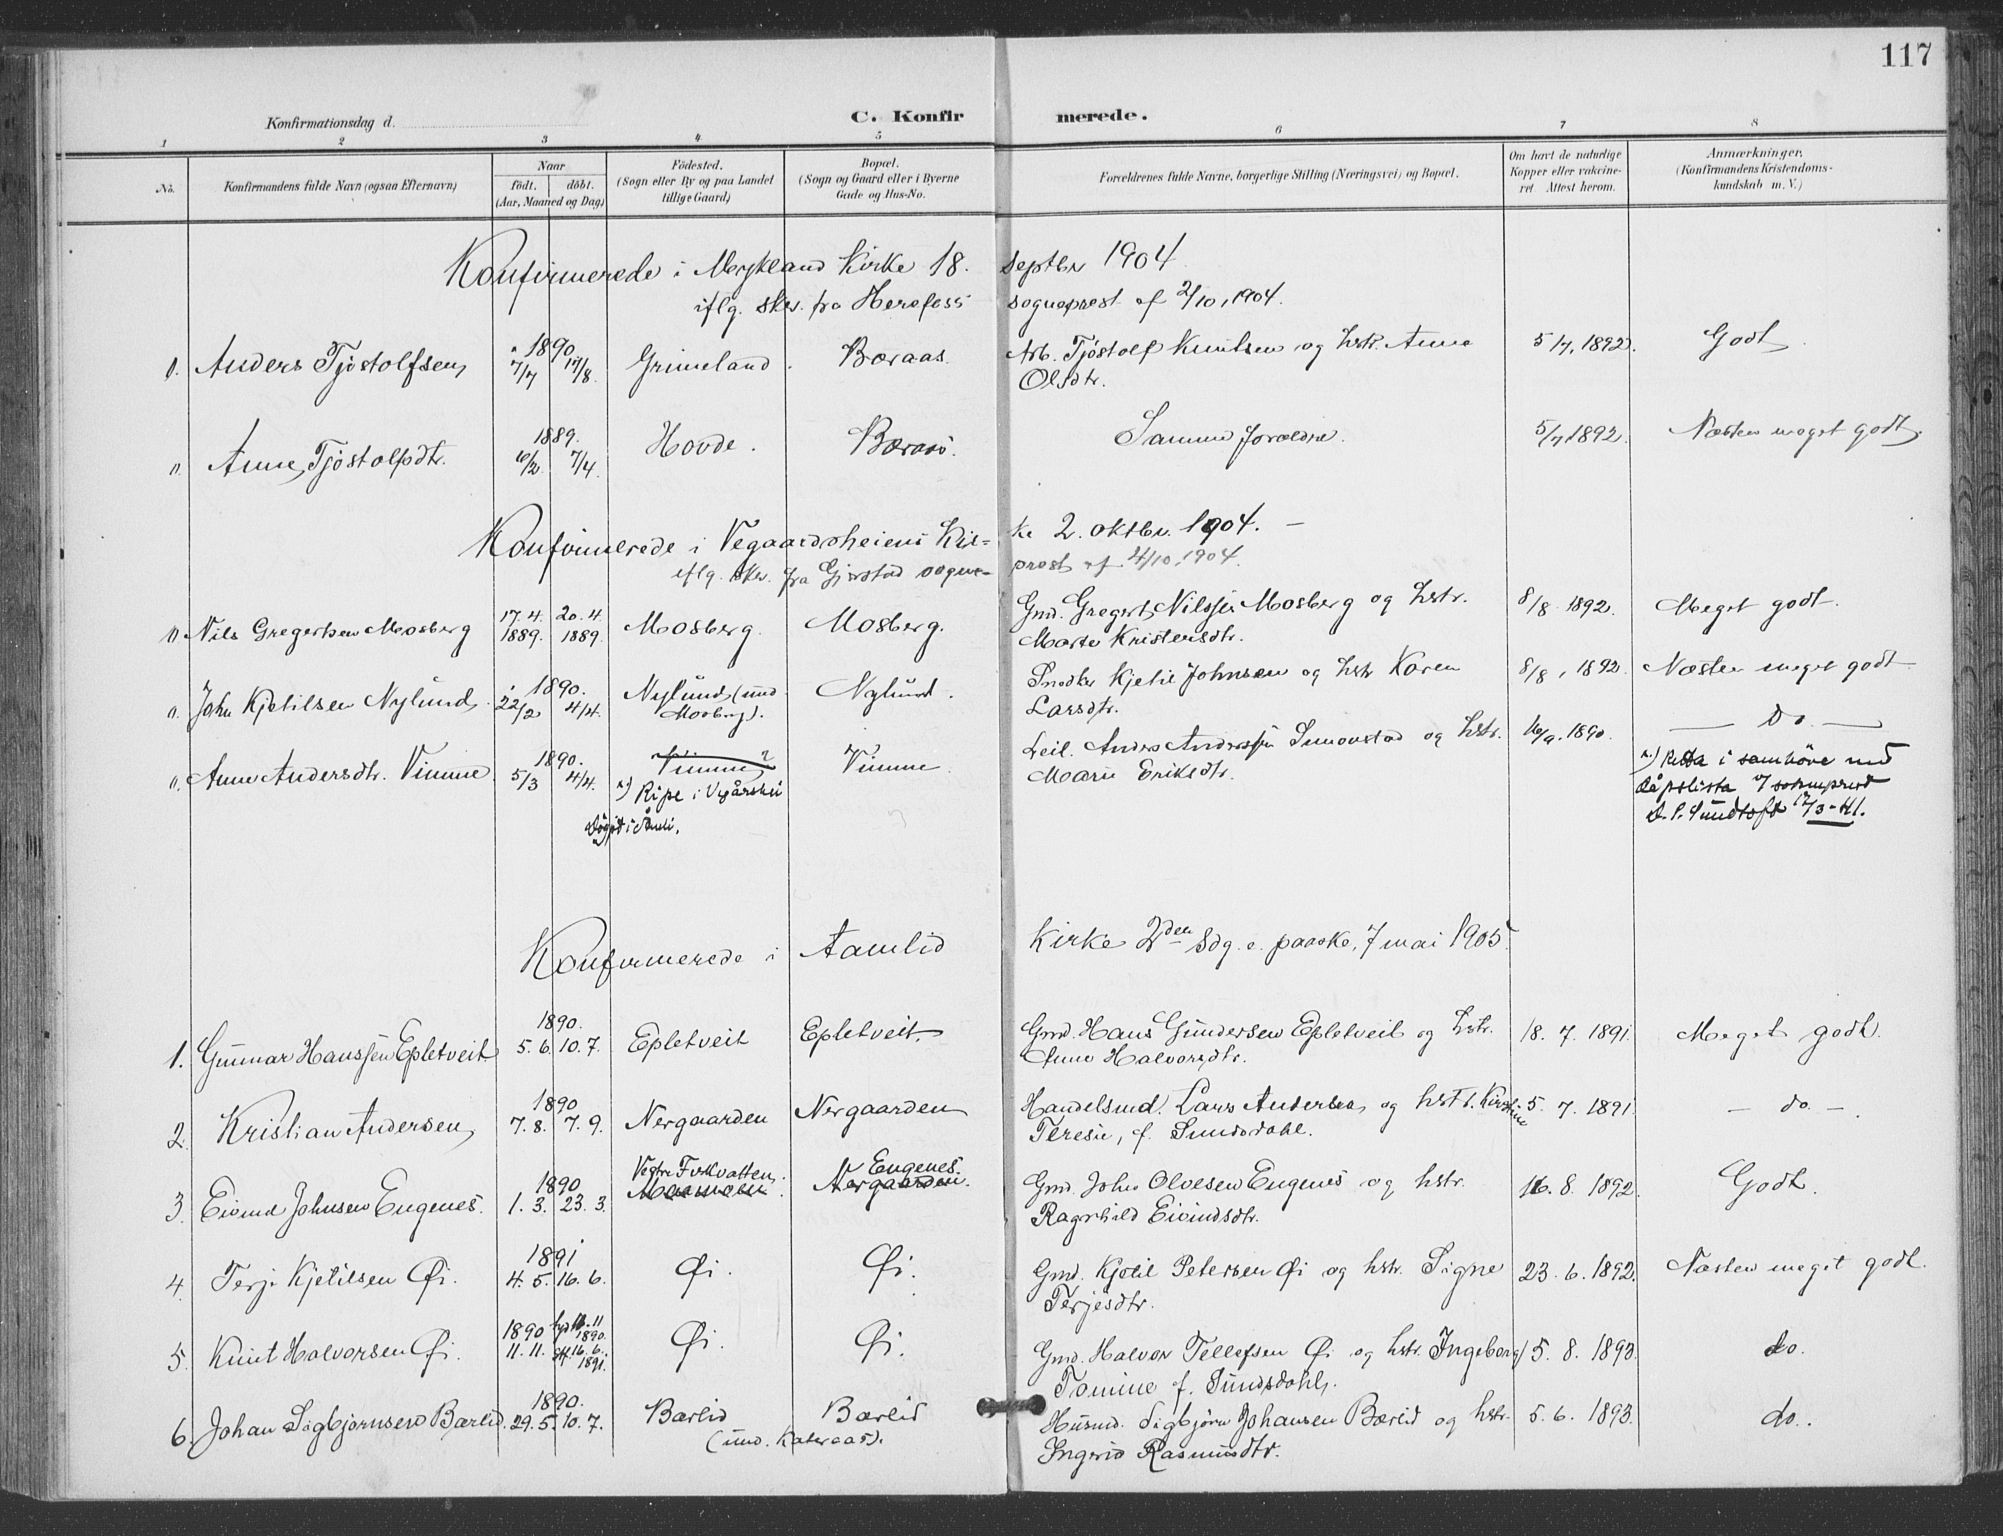 117
Konfirmationsdag d.
C. Konfirmerede.
1 2 3 4 5 6 7 8
No. Konfirmandens fulde Navn (ogsaa Efternavn) Naar født. døbt. (Aar, Maaned og Dag) Fødested. (Sogn eller By og paa Landet tillige Gaard) Bopæl. (Sogn og Gaard eller i Byerne Gade og Hus-No. Forældrenes fulde Navne, borgerlige Stilling (Næringsvei) og Bopæl. Om havt de naturlige Kopper eller vakcineret. Attest herom. Anmærkninger. (Konfirmandens Kristendomskundskab m. V.)
Konfirmerede i Mykland Kirke 18. septbr 1904
iflg. skr. fra Herefoss sogneprest af 2/10, 1904.
Anders Tjøstolfsen 1890 7/7 17/8. Grimeland. Bæraas. Arb. Tjøstolf Knutsen og hstr. Anne 5/7, 1892. Godt
Olsdtr.
Anne Tjøstolfsdtr. 1889. 10/2 7/4 Hovde. Bæraas. Samme forældre. 5/7 1892. Næsten meget godt.
Konfirmerede i Vegaardsheiens Kirke 2. oktbr. 1904. —
iflg. skr. fra Gjerstad sogneprest af 4/10, 1904.
Nils Gregertsen Mosberg 17.4. 1889. 20.4. 1889. Mosberg. Mosberg. Gmd. Gregert Nilssen Mosberg og hstr. 8/8 1892. Meget godt.
Marte Kristensdtr.
John Kjetilsen Nylund. 1890. 22/2 4/4. Nylund (und. Mosberg). Nylund. Snedker Kjetil Johnsen og hstr Karen 8/8, 1892. Næsten meget godt
Larsdtr.
Anne Andersdtr. Vimme. 1890. 5/3 4/4. Vimme Vimme. Leil. Anders Anderssen Simonstad og hstr. 16/9. 1890. — Do. —
Marie Eriksdtr.
x) Ripe i Vegårshei
Døypt i Åmli.
x) Retta i samhøve med
dåpslista 7 sokneprest
D. S. Sundtoft 17/3-41.
Konfirmerede i Aamlid Kirke 2den Sdg. e. paaske, 7 mai 1905.
1. Gunnar Hanssen Epletveit 1890. 5.6. 10.7. Epletveit Epletveit. Gmd. Hans Gundersen Epletveit og hstr. 18. 7. 1891. Meget godt.
Anne Halvorsdtr.
2. Kristian Andersen 1890 7.8. 7.9. Nergaarden Nergaarden Handelsmd. Lars Andersen og hstr. Kirstine 5. 7. 1891. — do. —
Teresie, f. Sundsdahl.
3. Eivind Johnsen Engenes. 1890 1.3. 23.3. Vestre Fiskvatten. Engenes. Nergaarden. Gmd. John Olvesen Engenes og hstr. 16. 8. 1892. Godt.
Ragnhild Eivindsdtr.
4. Terje Kjetilsen Øi. 1891 4.5. 16.6. Øi. Øi. Gmd. Kjetil Petersen Øi og hstr. Signe 23. 6. 1892. Næsten meget godt.
Terjesdtr.
5. Knut Halvorsen Øi. 1890 11.11. hjd 16.11 1890. stf. 16.6. 1891. Øi. Øi. Gmd. Halvor Tellefsen Øi og hstr. Ingeborg 15. 8. 1893. do.
Tomine f. Sundsdahl.
6. Johan Sigbjørnsen Bærlid. 1890. 29.5. 10.7. Bærlid Bærlid Husmd. Sigbjørn Johansen Bærlid og hstr. 5. 6. 1893. do.
(und. Kateraas). Ingerid Rasmusdtr.